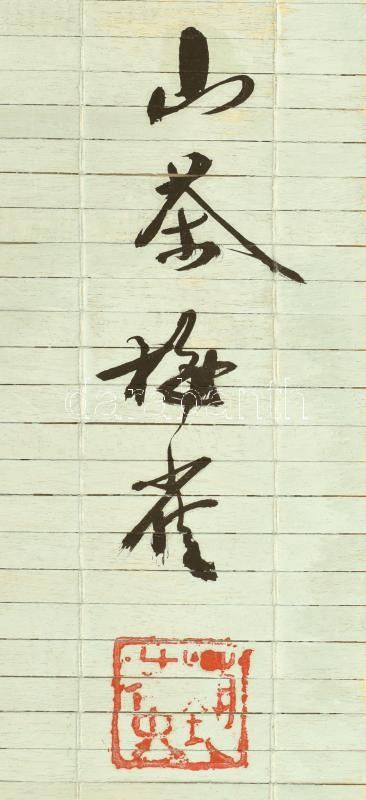 山茶梅雀
darabanth